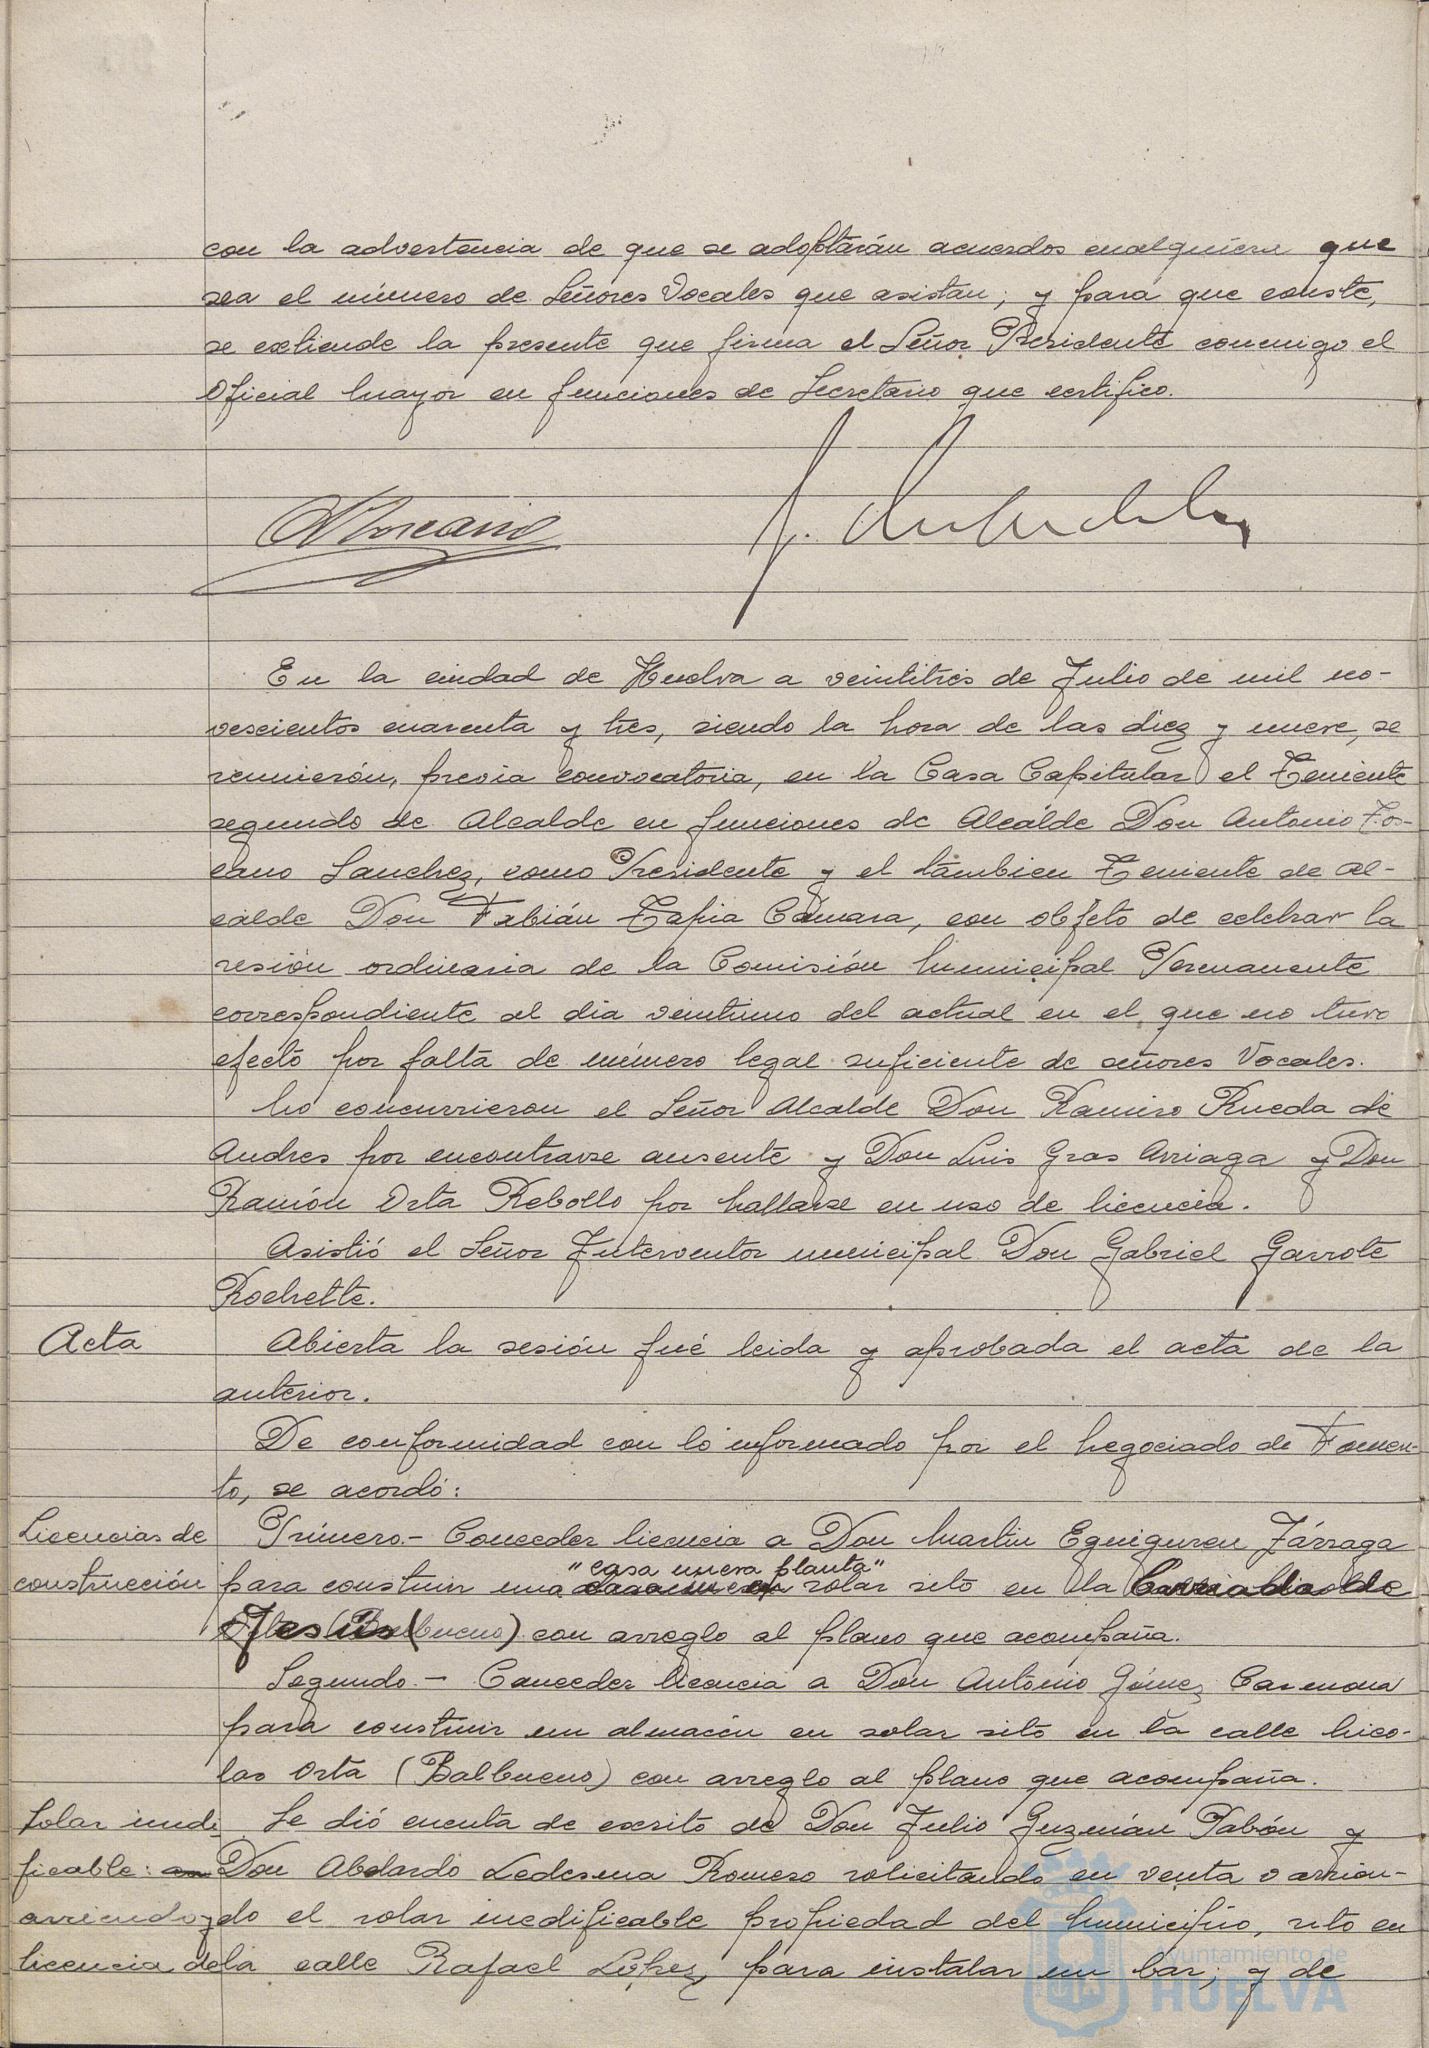 con la advertencia de que se adoptarán acuerdos cualquiera que
sea el número de Señores Vocales que asistan; y para que conste,
se extiende la presente que firma el Señor Presidente conmigo el
Oficial Mayor en funciones de Secretario que certifico.
En la ciudad de Huelva a veintitres de Julio de mil no-
vescientos cuarenta y tres, siendo la hora de las diez y nueve, se
reunierón, previa convocatoria, en la Casa Capitular el Teniente
segundo de Alcalde en funciones de Alcálde Don Antonio Tos-
cano Sanchez, como Presidente y el támbien Teniente de Al-
calde Don Fabián Tapia Camara, con objeto de celebrar la
sesión ordinaria de la Comisión Municipal Permanente
correspondiente al dia veintiuno del actual en el que no tuvo
efecto por falta de número legal suficiente de señores Vocales.
No concurrieron el Señor Alcalde Don Ramiro Rueda de
Andres por encontrarse ausente y Don Luis Gras Arriaga y Don
Ramón Orta Rebollo por hallarse en uso de licencia.
Asistió el Señor Interventor municipal Don Gabriel Garrote
Rochette.
Acta
Abierta la sesión fué leida y aprobada el acta de la
anterior.
De conformidad con lo informado por el Negociado de Fomen-
to, se acordó:
Licencias de
construcción
Primero.- Conceder licencia a Don Martin Eguiguren Zárraga
"casa nueva planta"
para construir una solar sito en la Barriada de
Jesús (Balbueno) con arreglo al plano que acompaña.
Segundo.- Conceder licencia a Don Antonio Gómez Carmona
para construir un almacén en solar sito en la calle Nico-
las Orta (Balbueno) con arreglo al plano que acompaña.
Solar inedi
ficable:
arriendo y
licencia de
Se dió cuenta de escrito de Don Julio Guzmán Pabón y
Don Abelardo Ledesma Romero solicitando en venta o arrien-
do el solar inedificable propiedad del Municipio, sito en
la calle Rafael López, para instalar un bar; y de
Ayuntamiento de
HUELVA